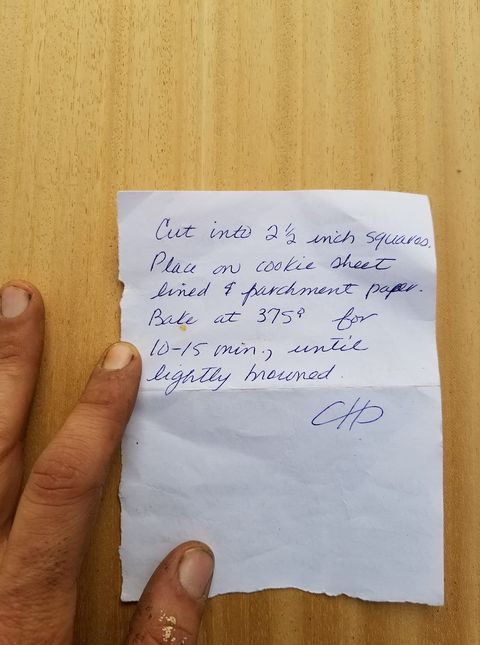 Cut into 2 1/2 inch squares.
Place on cookie sheet
lined & parchment paper.
Bake at 375° for
10-15 min., until
lightly browned.
CHD